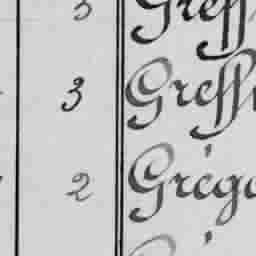 5 Greff
3 Greff
2 Grég